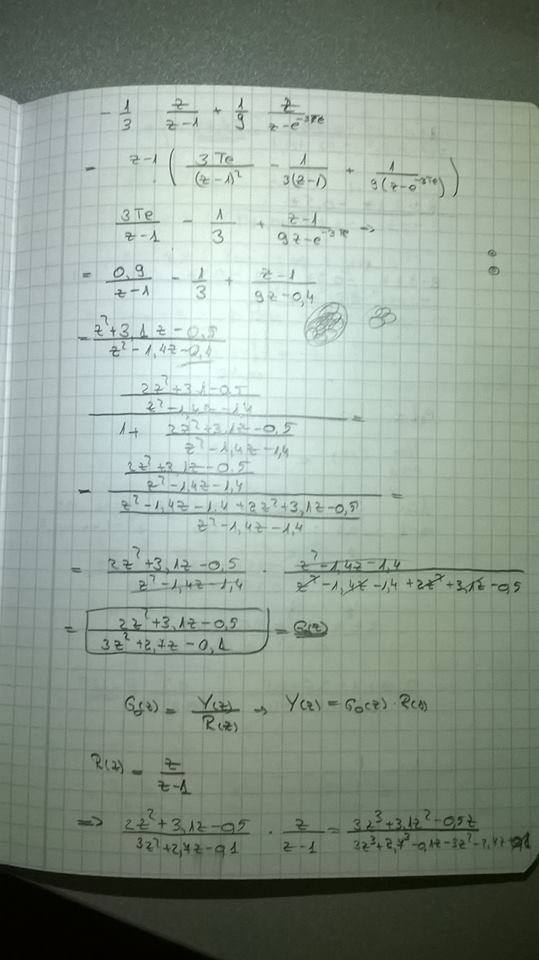 - 1/3 z/(z-1) + 1/9 z/(z-e^-3Te)
= z-1 ( 3Te/(z-1)² - 1/(3(z-1)) + 1/(9(z-e^-3Te)) )
3Te/(z-1) - 1/3 + (z-1)/(9z-e^-3Te) →
= 0,9/(z-1) - 1/3 + (z-1)/(9z-0,4)
= (z²+3,1z-0,5)/(z²-1,4z-2,4)
((2z²+3,1-0,5)/(z²-1,4z-1,4))/(1+ (2z²+3,1z-0,5)/(z²-1,4z-1,4)) =
- ((2z²+3,1z-0,5)/(z²-1,4z-1,4))/((z²-1,4z-1,4+2z²+3,1z-0,5)/(z²-1,4z-1,4)) =
= (2z²+3,1z-0,5)/(z²-1,4z-1,4) · (z²-1,4z-1,4)/(z²-1,4z-1,4+2z²+3,1z-0,5)
= (2z²+3,1z-0,5)/(3z²+2,7z-0,1) = G(z)
G₀(z) = Y(z)/R(z) → Y(z) = G₀(z) · R(z)
R(z) = z/(z-1)
=> (2z²+3,1z-0,5)/(3z²+2,7z-0,1) · z/(z-1) = (3z³+3,1z²-0,5z)/(3z³+2,7³-0,1z-3z²-2,7z